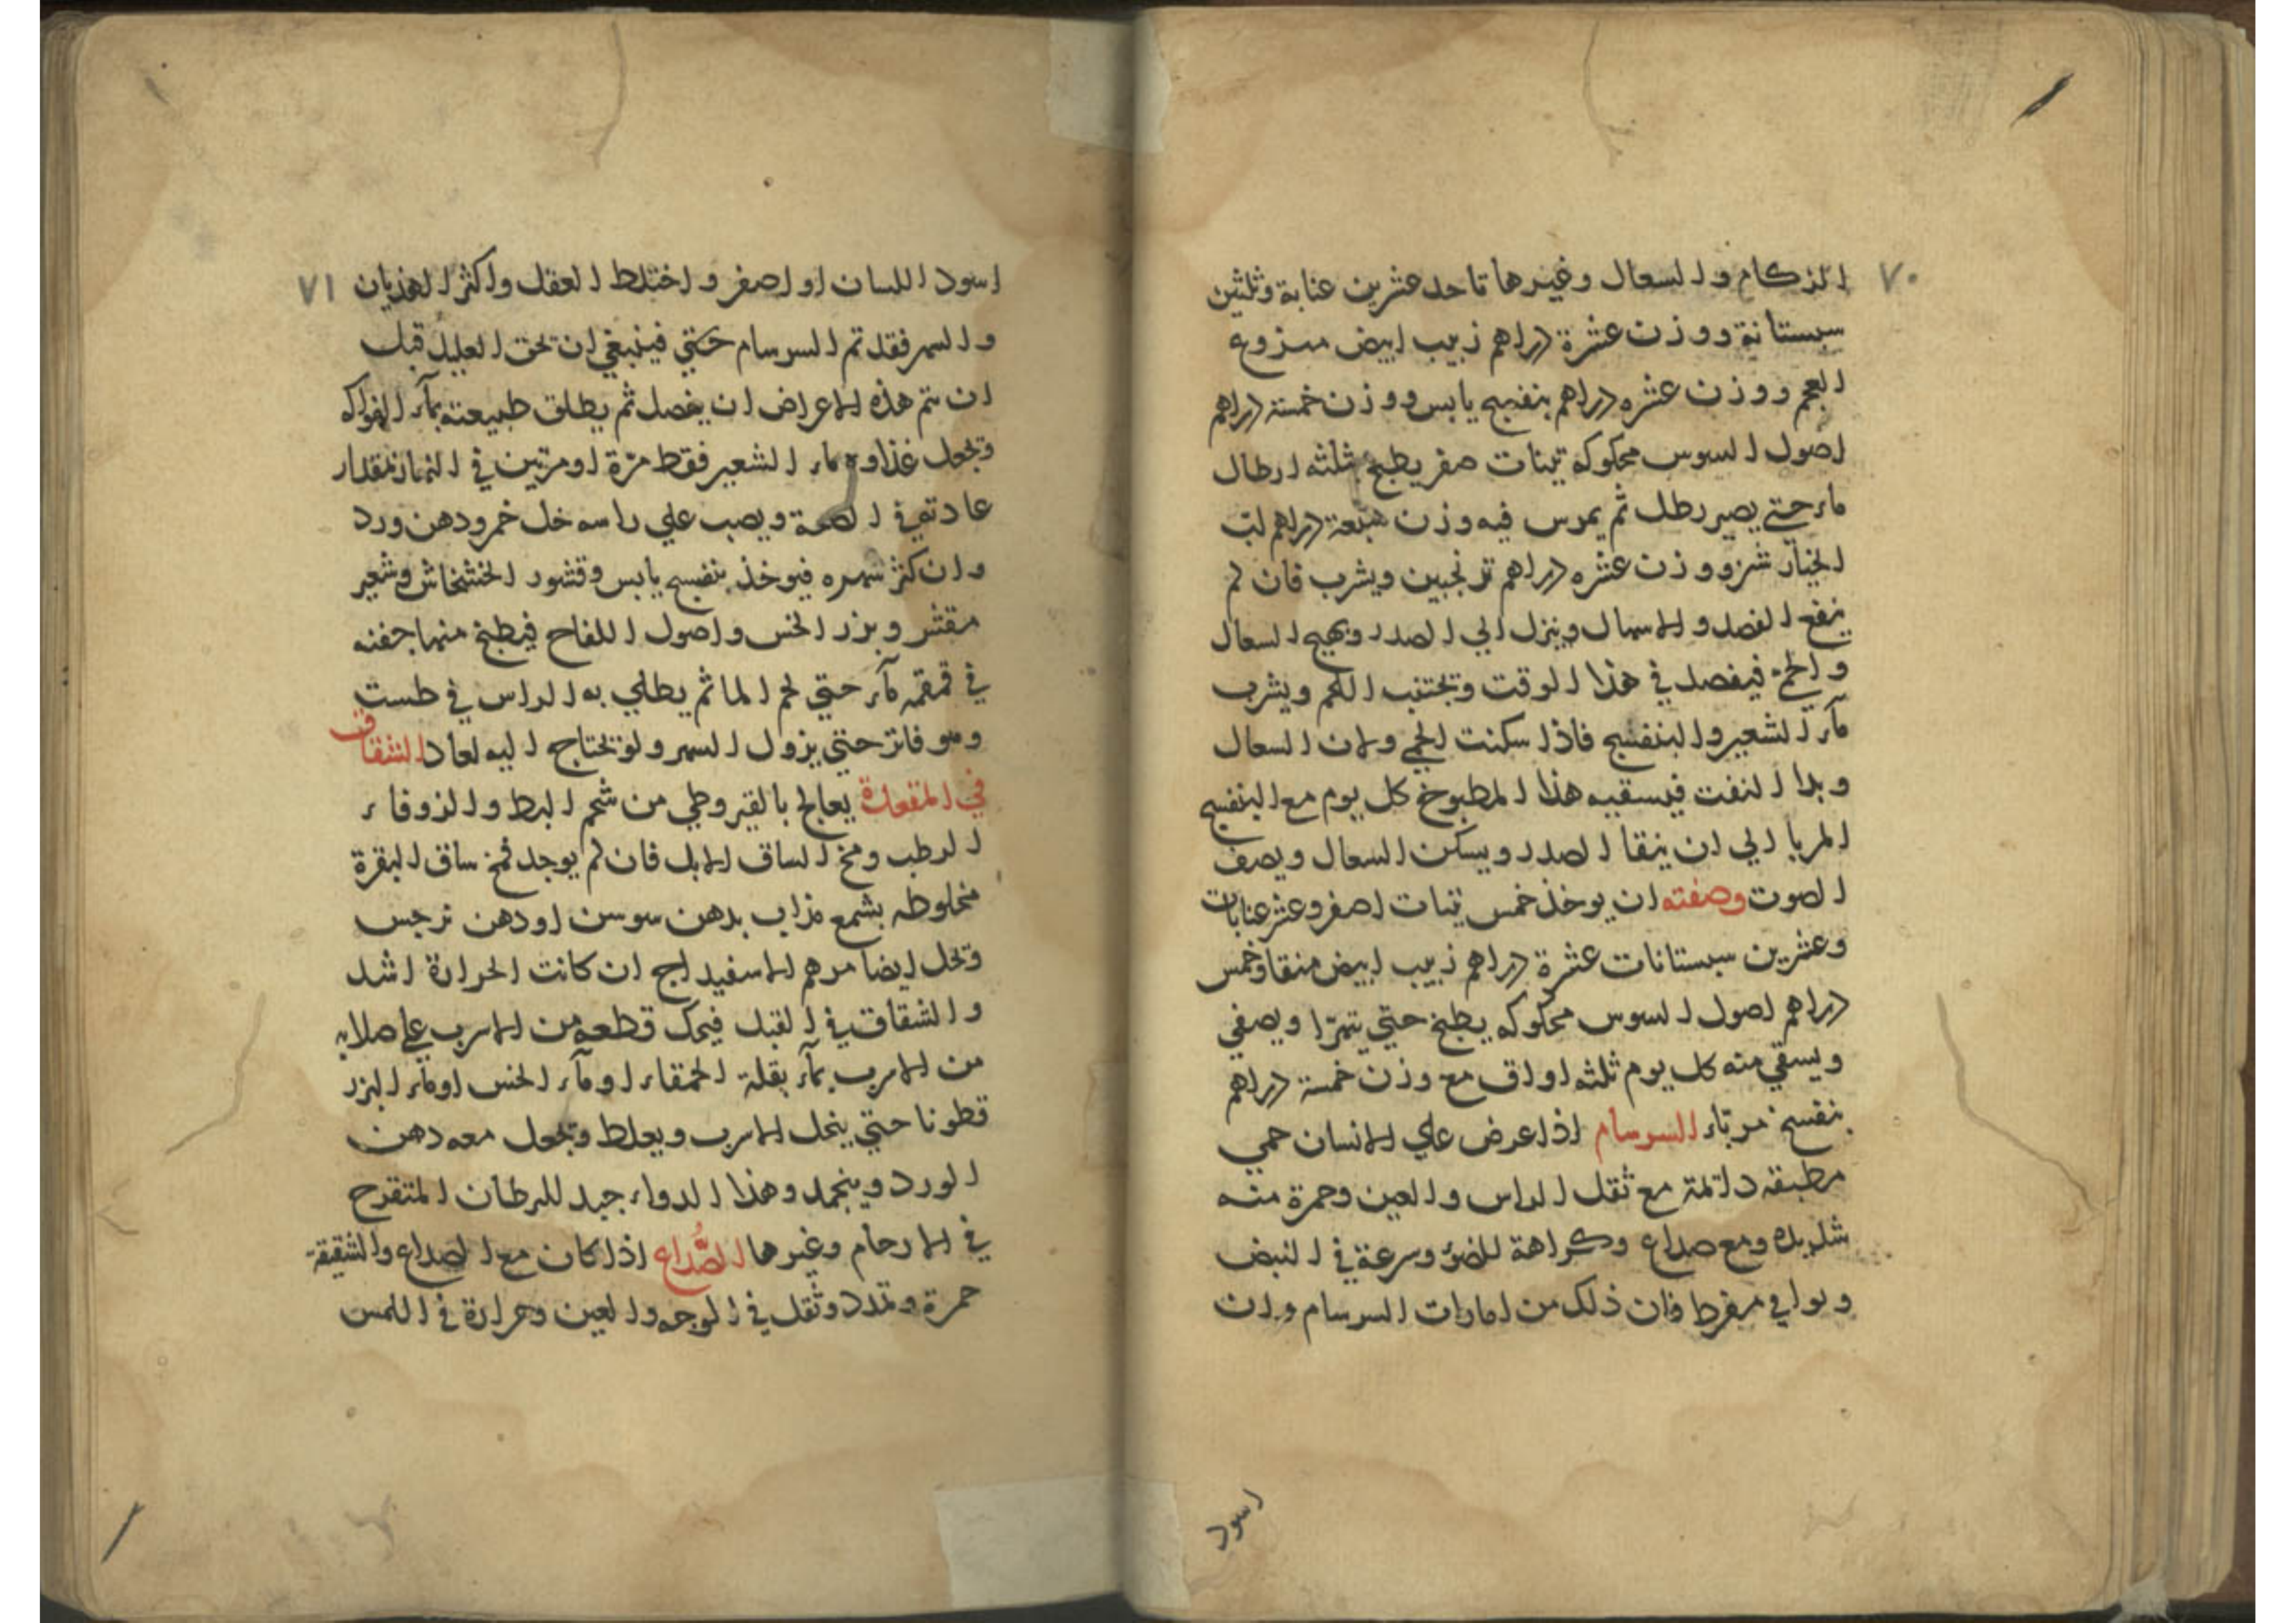 ٧٠
الزكام والسعال وغيرها تاحد عشرين عنابة وثلثين
سبستانة ووزن عشرة دراهم زبيب ابيض منزوع
العجم ووزن عشره دراهم بنفسج يابس ووزن خمسة دراهم
اصول السوس محكوكه تينات صفر يطبخ بثلثه ارطال
ماء حتي يصير رطل ثم يمرس فيه وزن سبعة دراهم لب
الخيار شنبر ووزن عشره دراهم ترنجبين ويشرب فان لم
ينفع الفصد والاسهال وينزل الي الصدر ويهيج السعال
والحمى فيفصد في هذا الوقت وتجتنب اللحم ويشرب
مآء الشعير والبنفسج فاذا سكنت الحمي ولان السعال
وبدا النفث فيسقيه هذا المطبوخ كل يوم مع البنفسج
المربا الي ان ينقا الصدر ويسكن السعال ويصف
الصوت وصفته ان يوخذ خمس تينات اصفر وعشر عنابات
وعشرين سبستانات عشرة دراهم زبيب ابيض منقا وخمس
دراهم اصول السوس محكوكه يطبخ حتي يتهرا ويصفي
ويسقي منه كل يوم ثلثه اواق مع وزن خمسة دراهم
بنفسج مرباء السرسام اذا عرض علي الانسان حمي
مطبقه دائمة مع ثقل الراس والعين وحمرة منه
شديده ومع صداع وكراهة للضؤ وسرعة في النبض
وبوا في مفرط فان ذلك من امارات السرسام وان
اسود
٧١
اسود اللسان او اصفر واختلط العقل واكثر الهذيان
والسهر فقد تم السرسام حتي فينبغي ان تحق العليل قبل
ان تتم هذه الاعراض ان يفصد ثم يطلق طبيعته بمآء الفواكه
وتجعل غذاوه ماء الشعير فقط مرة او مرتين في النهار بمقدار
عادته في الصحة ويصب علي راسه خل خمر ودهن ورد
وان كثر سهره فيوخذ بنفسج يابس وقشور الخشخاش وشعير
مقشر وبزر الخس واصول اللفاح فيطبخ منها حفنه
في قمقمه مآء حتي لحم الما ثم يطلي به الراس في طست
وهو فاتر حتي يزول السهر ولو تحتاجه اليه لعاد الشقاق
في المقعدة يعالج بالقيروطي من شحم البط والزوفاء
الرطب ومخ الساق الابل فان لم يوجد فمخ ساق البقرة
مخلوطه بشمع مذاب بدهن سوسن او دهن نرجس
وتخل ايضا مرهم الاسفيداج ان كانت الحرارة اشد
والشقاق في القبل فيحك قطعه من الاسرب علي صلابه
من الاسرب بمآء بقلة الحمقاء او مآء الخس او مآء البزر
قطونا حتي ينحل الاسرب ويعلط وتجعل معه دهن
الورد وينجمد وهذا الدواء جيد للسرطان المتقرح
في الارحام وغيرها الصُّداع اذا كان مع الصداع والشقيقة
حمرة وتمدد وثقل في الوجه والعين وحرارة في اللمس